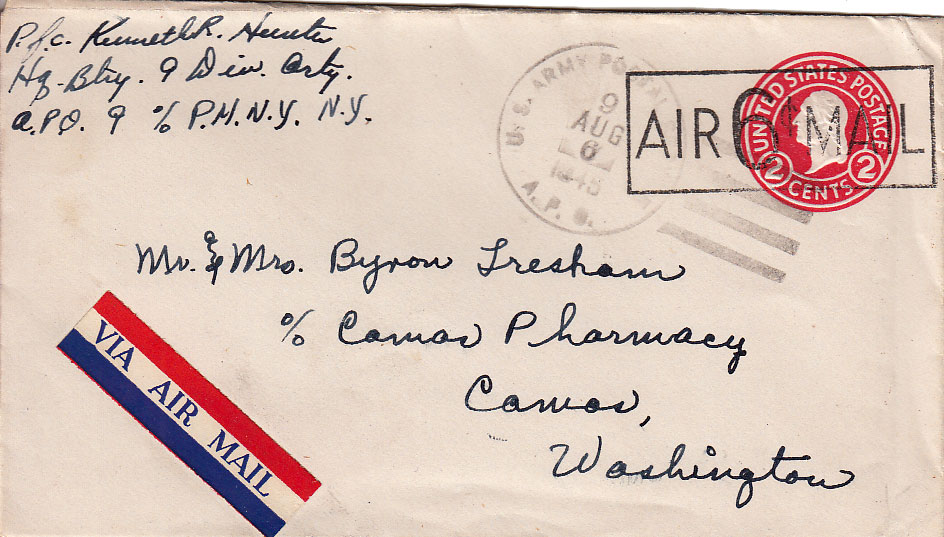 P.f.c. Kenneth R. Hunter
Hq. Btry. 9 Div. Arty.
A.P.O. 9 % P.M. N.Y. N.Y.
U. S. ARMY POSTAL
9
AUG
6
1945
A. P. O.
AIR 6¢ MAIL
UNITED STATES POSTAGE
2 CENTS 2
Mr. & Mrs. Byron Tresham
% Camas Pharmacy
Camas,
Washington
VIA AIR MAIL